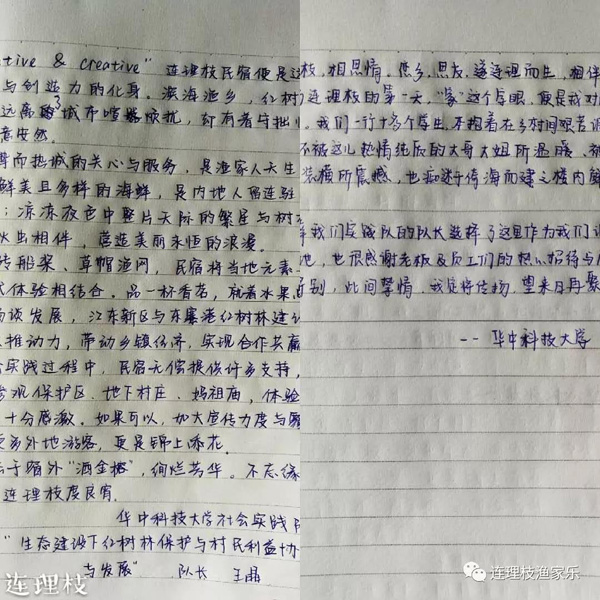 ative & creative" 连理枝民宿便是这
与创造力的化身。滨海渔乡,红树
远离了城市喧嚣烦扰,却有着与世
意安然。
而热诚的关心与服务,是渔家人天生
鲜美且多样的海鲜,是内地人宿连理
;凉凉夜色中整片天际的繁星与树
出相伴,营造美丽永恒的浪漫。
砖船桨、草帽渔网,民宿将当地元素
体验相结合。品一杯香茗,就着水果,
谈发展,江东新区与东寨港红树林建设
推动力,带动乡镇经济,实现合作共赢
实践过程中,民宿无偿提供许多支持,
参观保护区、地下村庄、妈祖庙,体验
十分感激。如果可以,加大宣传力度与
更多外地游客,更是锦上添花。
于酒外"洒金榭",绚烂芳华。不忘缘
连理枝度良宵。
华中科技大学社会实践队
"生态建设下红树林保护与村民利益协
与发展" 队长 王晶
连理枝
枝,相思情。思乡,思友,遂连理而生,相伴
连理枝的第一天,"家"这个字眼,便是我对
。我们一行十多个学生,本抱着在乡村间艰苦调
不被这儿热情纯质的大哥大姐所温暖,被
装横所震撼,也痴迷于倚海而建之楼内鲜
我们实践队的队长选择了这里作为我们
地,也很感谢老板&员工们的热心招待与
别,此间挚情,我觉得传扬,望来日再聚
--华中科技大学
连理枝渔家乐